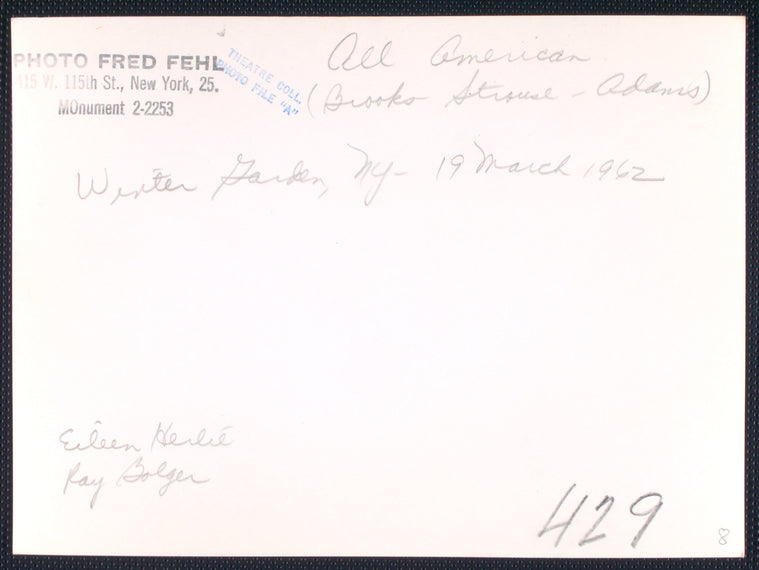 PHOTO FRED FEHL
415 W. 115th St., New York, 25.
MOnument 2-2253
THEATRE COLL.
PHOTO FILE "A"
All American
(Brooks Strouse - Adams)
Winter Garden, NY- 19 March 1962
Eileen Herlie
Ray Bolger
429
8